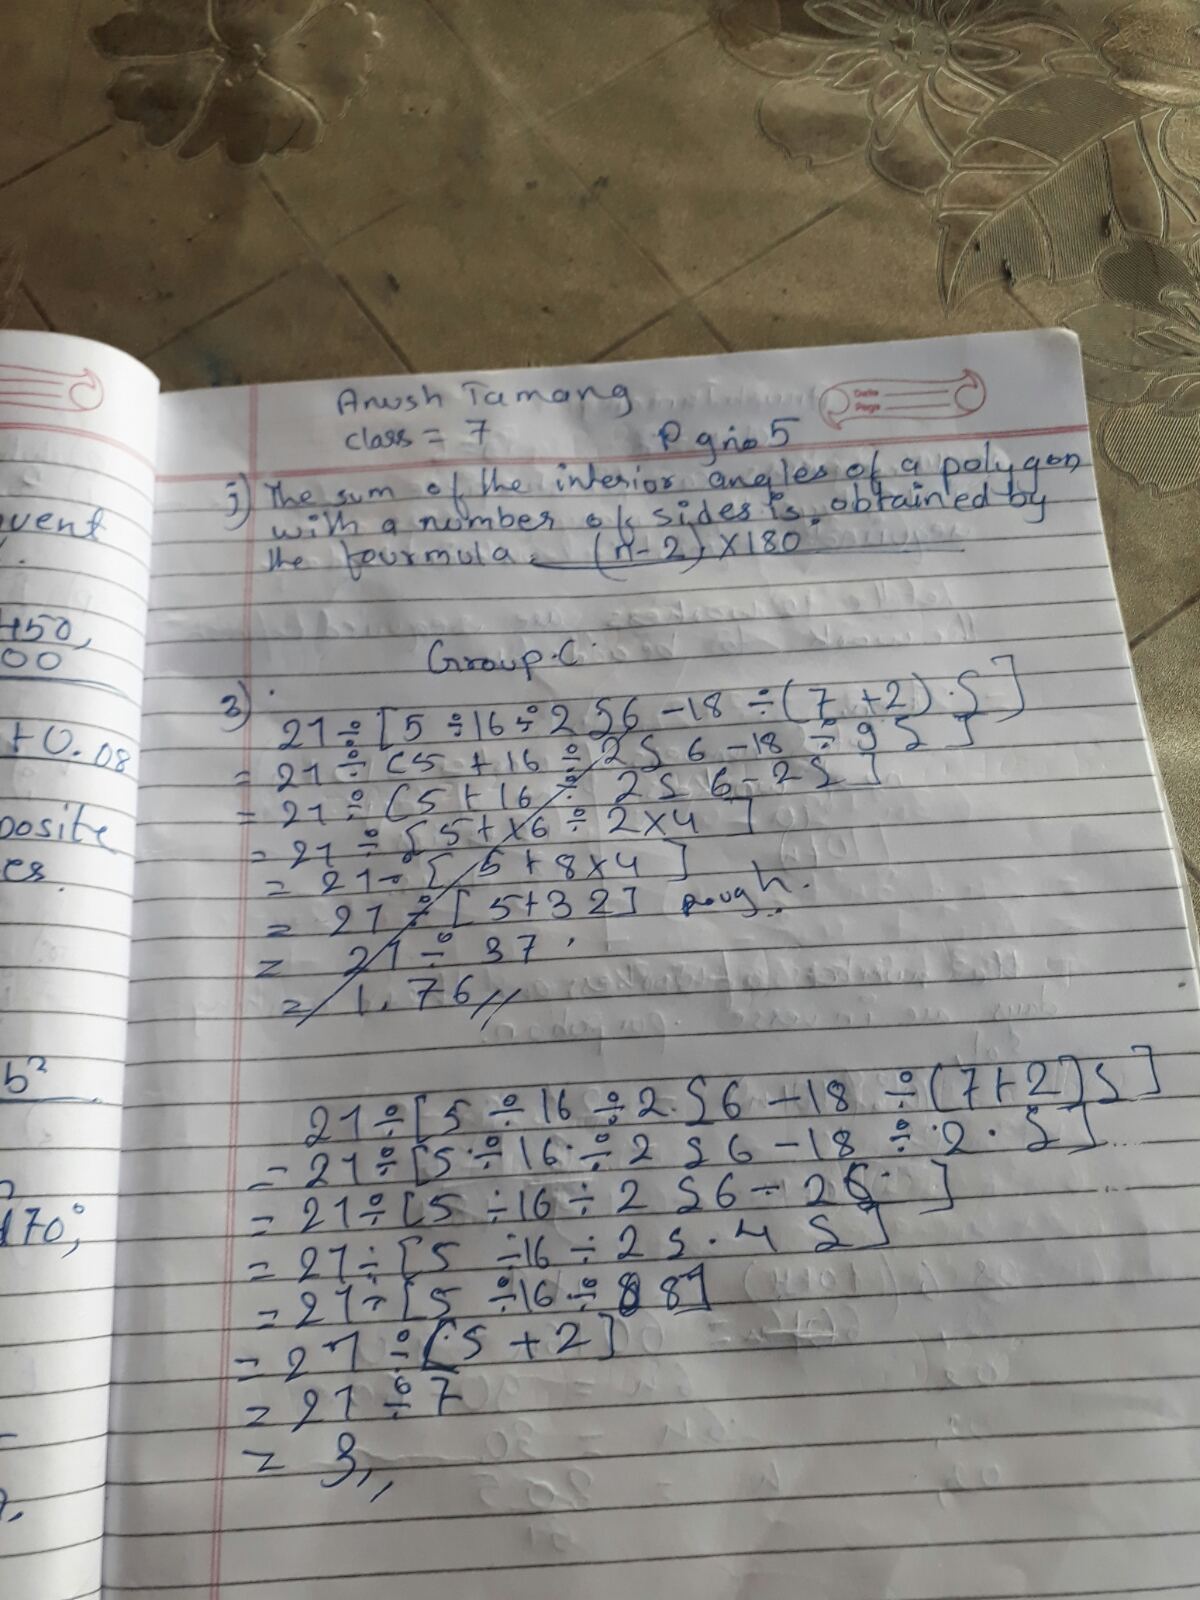 uent
450,
00
+0.08
posite
es.
b²
170°,
Anush Tamang
Date
Page
class = 7
Pg no 5
j) The sum of the interior angles of a polygon
with a number of sides is obtained by
the fourmula (n-2) ×180
Group.C.
3)
21÷[5 ÷16÷2 {6 -18 ÷(7 +2).}]
= 21÷(5 + 16 ÷ 2{6 -18 ÷ 9}]
= 21÷(5+16 ÷ 2{6-2}]
= 21÷[5+16÷2×4]
= 21÷[5+8×4]
= 21÷[5+32] rough.
= 21÷37
= 1.76//
21÷[5 ÷16 ÷2.{6 -18 ÷(7+2)}]
= 21÷[5÷16÷2 {6 -18 ÷2.}]
= 21÷[5 ÷16 ÷ 2 {6-2}]
= 21÷[5 ÷16 ÷2{.4}]
= 21÷[5 ÷16÷8 8]
= 21÷[5 +2]
= 21÷7
= 3,,